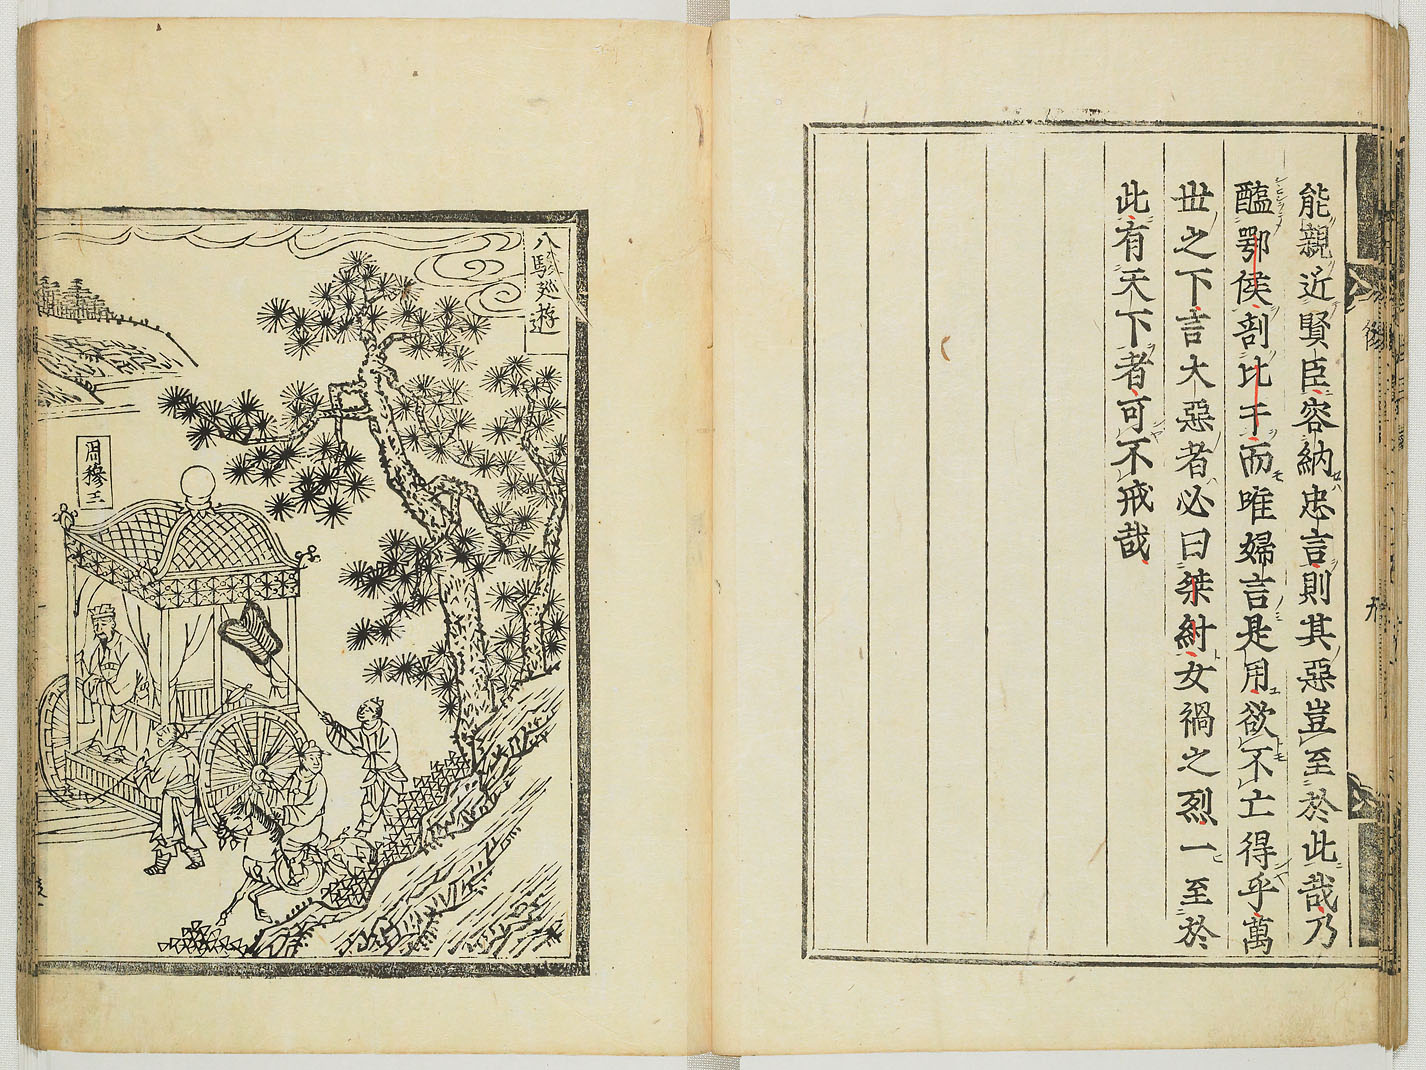 能親近賢臣容納忠言則其惡豈至於此哉乃
醢鄂侯剖比干而唯婦言是用欲不亡得乎萬
世之下言大惡者必曰桀紂女禍之烈一至於
此有天下者可不戒哉
八駿廵遊
周穆王